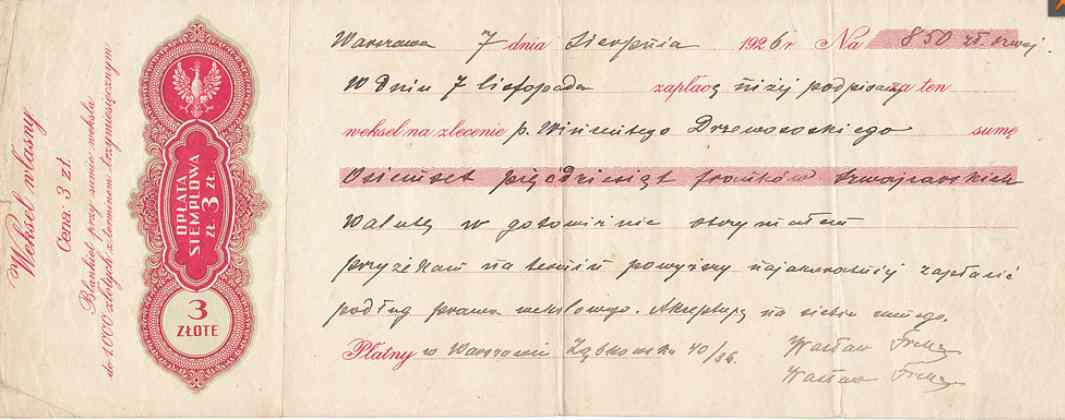 Weksel własny
Cena: 3 zł.
Blankiet przy sumie wekslu
do 1.000 złotych z terminem trzymiesięcznym
OPŁATA
STEMPLOWA
ZŁ 3 ZŁ.
3
ZŁOTE
Warszawa 7 dnia Sierpnia 1926 r. Na 850 zł. szwaj.
W dniu 7 listopada zapłacę niżej podpisany za ten
weksel na zlecenie p. Drzewososkiego sumę
Osiemset pięćdziesiąt franków szwajcarskich
Walutę w gotowiźnie otrzymałem
przyrzekam na termin powyższy najakuratniej zapłacić
podług prawa wekslowego. Akceptuję na siebie samego.
Płatny w Warszawie Ząbkowska 40/36.
Wacław
Wacław